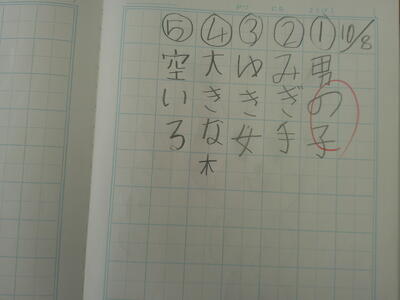 10/8
①男の子
②みぎ手
③ゆき女
④大きな木
⑤空いろ